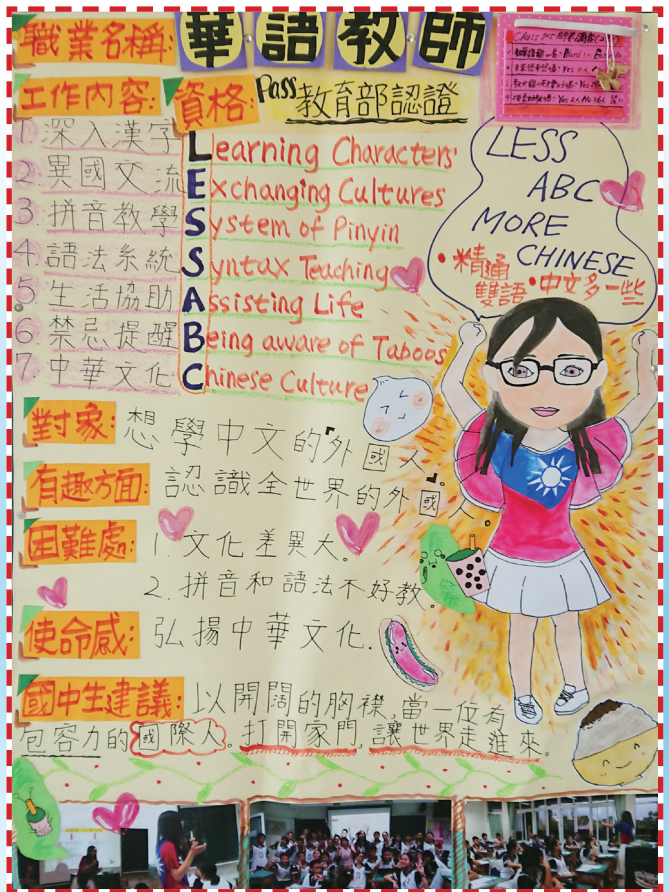 職業名稱: 華語教師
工作內容: 資格: Pass 教育部認證
1. 深入漢字 Learning Characters
2. 異國交流 Exchanging Cultures
3. 拼音教學 System of Pinyin
4. 語法系統 Syntax Teaching
5. 生活協助 Assisting Life
6. 禁忌提醒 Being aware of Taboos
7. 中華文化 Chinese Culture
LESS
ABC
MORE
CHINESE
•精通雙語
•中文多一些
對象: 想學中文的「外國人」。
有趣方面: 認識全世界的外國人。
困難處: 1. 文化差異大。
2. 拼音和語法不好教。
使命感: 弘揚中華文化.
國中生建議: 以開闊的胸襟,當一位有
包容力的國際人。打開家門,讓世界走進來。